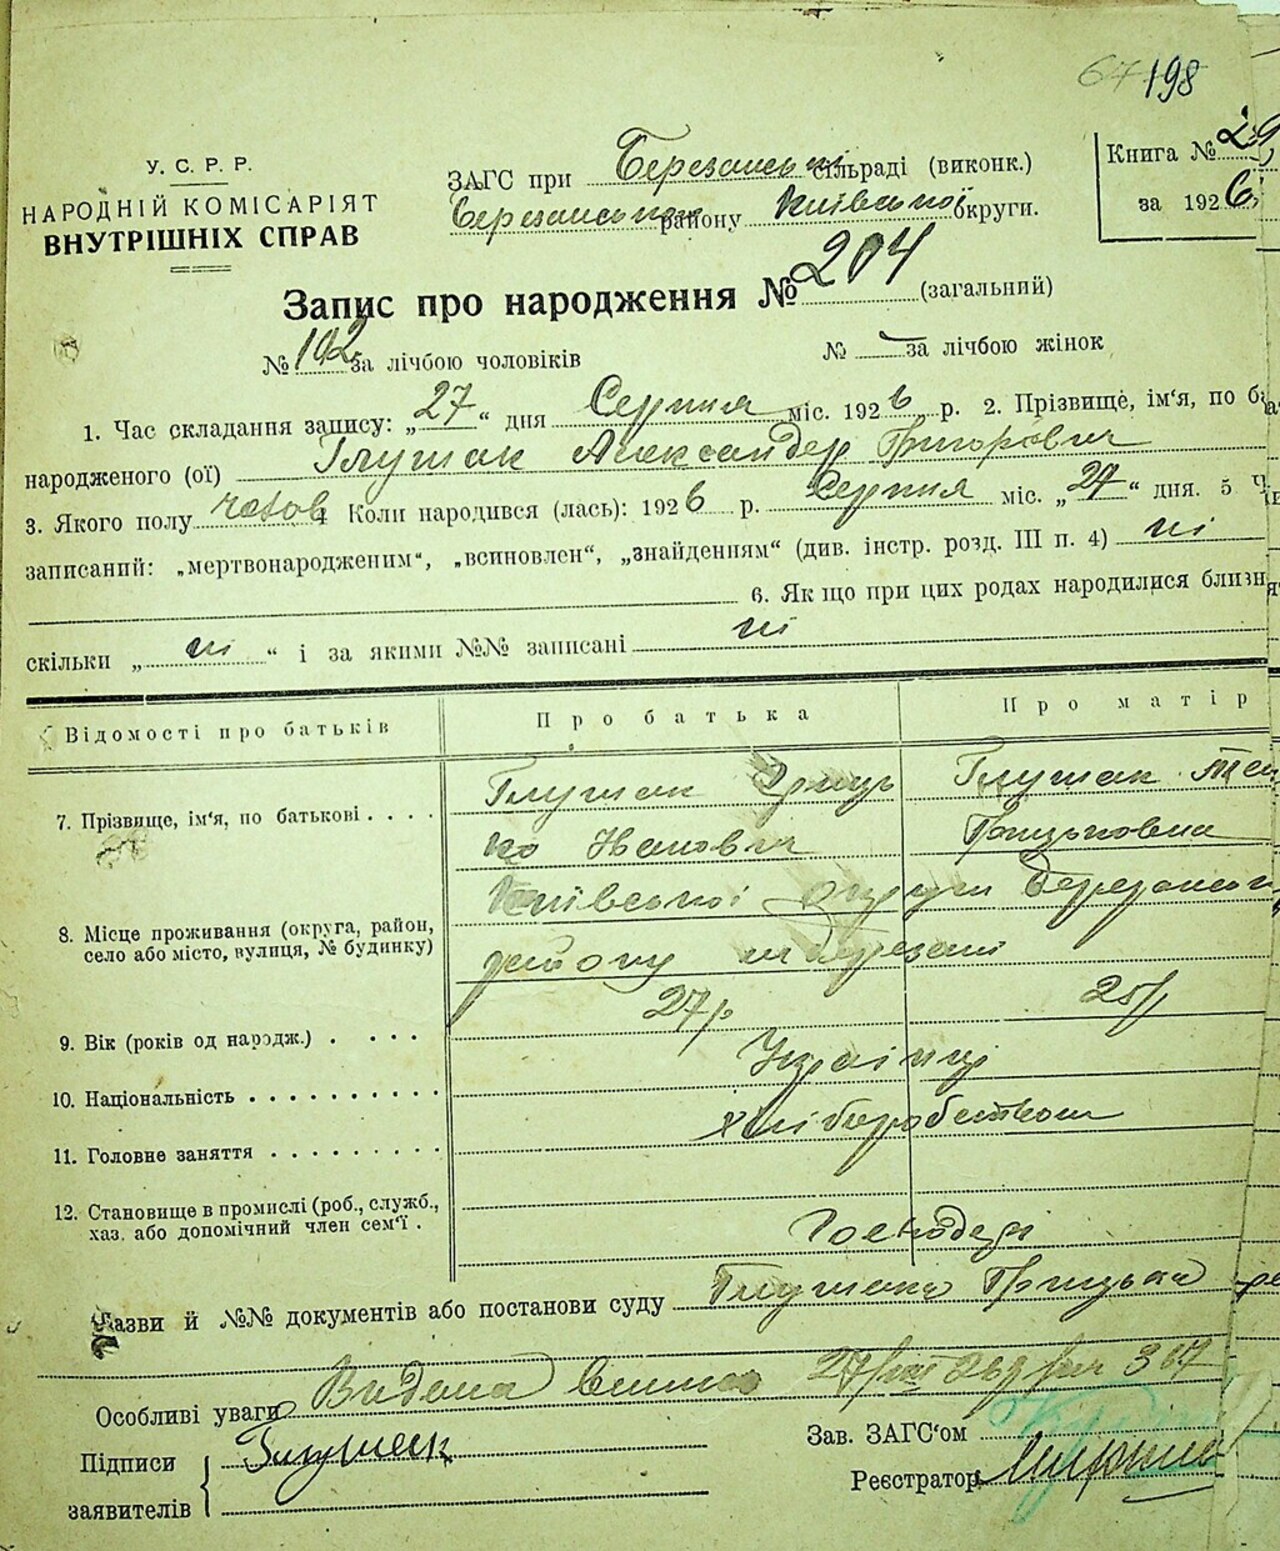 67 198
У. С. Р. Р.
НАРОДНІЙ КОМІСАРІЯТ
ВНУТРІШНІХ СПРАВ
ЗАГС при Березанській сільраді (виконк.)
Березанського району Київської округи.
Книга № 29
за 1926
Запис про народження № 204 (загальний)
№ 102 за лічбою чоловіків
№ — за лічбою жінок
1. Час складання запису: „27“ дня Серпня міс. 1926 р. 2. Прізвище, ім‘я, по ба
народженого (ої) Глушак Александер Григорович
3. Якого полу чолов 4 Коли народився (лась): 1926 р. Серпня міс. „27“ дня. 5
записаний: „мертвонародженим“, „всиновлен“, „знайденням“ (див. інстр. розд. III п. 4) ні
6. Як що при цих родах народилися близн
скільки „ ні “ і за якими №№ записані ні
Відомості про батьків
Про батька
Про матір
7. Прізвище, ім‘я, по батькові . . . .
Глушак Гриць
ко Іванович
Глушак
Грицьковна
8. Місце проживання (округа, район,
село або місто, вулиця, № будинку)
Київської округи Березансь
району м Березані
9. Вік (років од народж.) . . . .
27 р
25 р
10. Національність . . . . . . . . . .
Українці
11. Головне заняття . . . . . . . . .
хліборобством
12. Становище в промислі (роб., служб.,
хаз. або допомічний член сем‘ї .
Господарі
Назви й №№ документів або постанови суду Глушака Грицька
Особливі уваги Видана 27/VIII 26 р за 367
Підписи
заявителів
Глушак
Зав. ЗАГС‘ом
Реєстратор